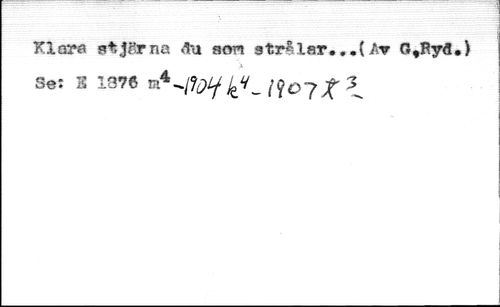 Klara stjärna du som strålar...(Av G.Ryd.)
Se: E 1876 m4 -1904 k4 - 1907 t 3